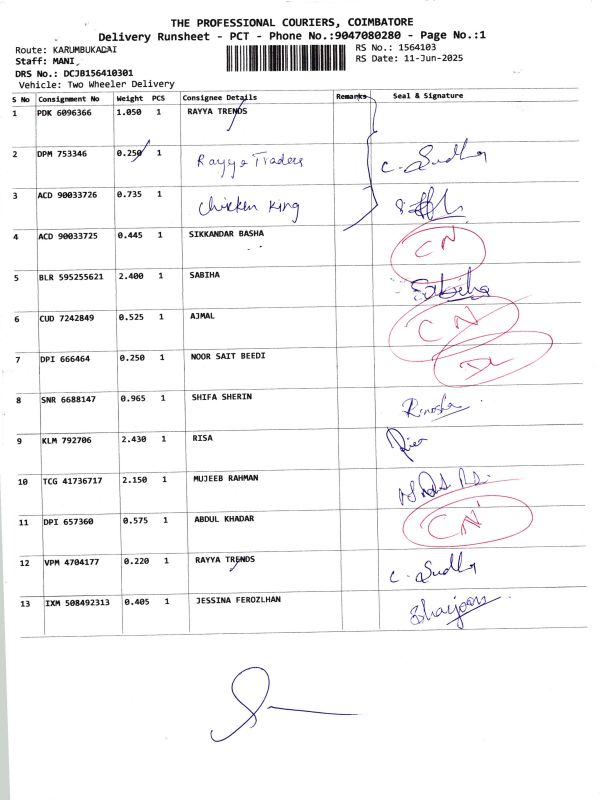 THE PROFESSIONAL COURIERS, COIMBATORE
Delivery Runsheet - PCT - Phone No.:9047080280 - Page No.:1
Route: KARUMBUKADAI
RS No.: 1564103
Staff: MANI,
RS Date: 11-Jun-2025
DRS No.: DCJB156410301
Vehicle: Two Wheeler Delivery
S No Consignment No Weight PCS Consignee Details Remarks Seal & Signature
1 PDK 6096366 1.050 1 RAYYA TRENDS
2 DPM 753346 0.250 1 Rayya Traders C. Sudha
3 ACD 90033726 0.735 1 Chicken King
4 ACD 90033725 0.445 1 SIKKANDAR BASHA CN
5 BLR 595255621 2.400 1 SABIHA Sabiha
6 CUD 7242849 0.525 1 AJMAL CN
7 DPI 666464 0.250 1 NOOR SAIT BEEDI DL
8 SNR 6688147 0.965 1 SHIFA SHERIN
9 KLM 792706 2.430 1 RISA
10 TCG 41736717 2.150 1 MUJEEB RAHMAN
11 DPI 657360 0.575 1 ABDUL KHADAR CN
12 VPM 4704177 0.220 1 RAYYA TRENDS C. Sudha
13 IXM 508492313 0.405 1 JESSINA FEROZLHAN